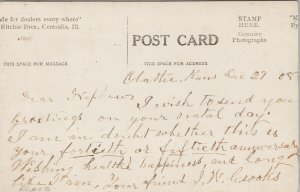 ade for dealers every where"
Ritchie Bros., Centralia, Ill.
POST CARD
STAMP
HERE.
Genuine
Photographs
THIS SPACE FOR MESSAGE
THIS SPACE FOR ADDRESS
Olathe, Kans Dec 27 08
Dear Nephew I wish to send you
greetings on your natal day.
I am in doubt whether this is
your fortieth or fiftieth anniversary
Wishing health happiness, and long
Your friend J. H.